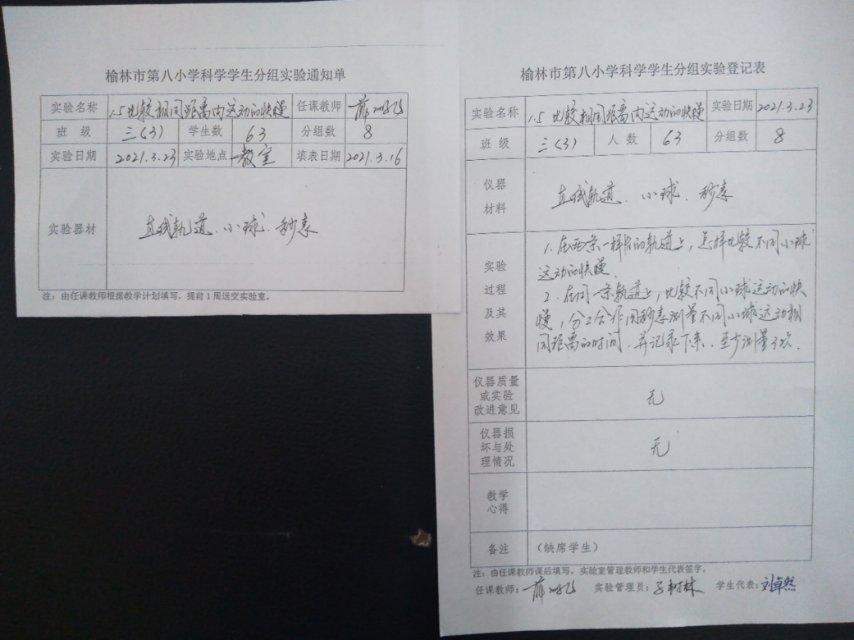 榆林市第八小学科学学生分组实验通知单
实验名称 1.5比较相同距离内运动的快慢 任课教师
班 级 三(3) 学生数 63 分组数 8
实验日期 2021.3.23 实验地点 教室 填表日期 2021.3.16
实验器材 直线轨道、小球、秒表
注：由任课教师根据教学计划填写，提前1周送交实验室。
榆林市第八小学科学学生分组实验登记表
实验名称 1.5 比较相同距离内运动的快慢 实验日期 2021.3.23
班 级 三(3) 人 数 63 分组数 8
仪器
材料
直线轨道、小球、秒表
实验
过程
及其
效果
1.在两条一样长的轨道上，怎样比较不同小球
运动的快慢
2.在同一条轨道上，比较不同小球运动的快
慢，分工合作用秒表测量不同小球运动相
同距离的时间，并记录下来，至少测量3次.
仪器质量
或实验
改进意见
无
仪器损
坏与处
理情况
无
教学
心得
备注 （缺席学生）
注：由任课教师课后填写，实验室管理教师和学生代表签字。
任课教师： 实验管理员： 学生代表：刘卓然